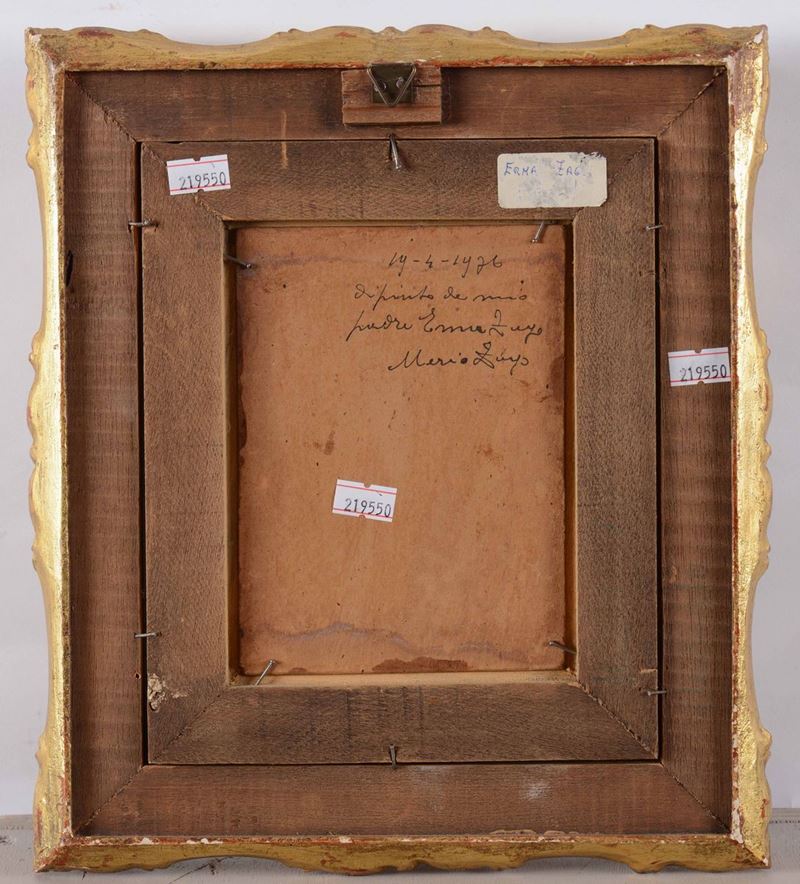 219550
ERMA ZAGO
19-4-1976
dipinto de mio
padre Erma Zago
Mario Zago
219550
219550